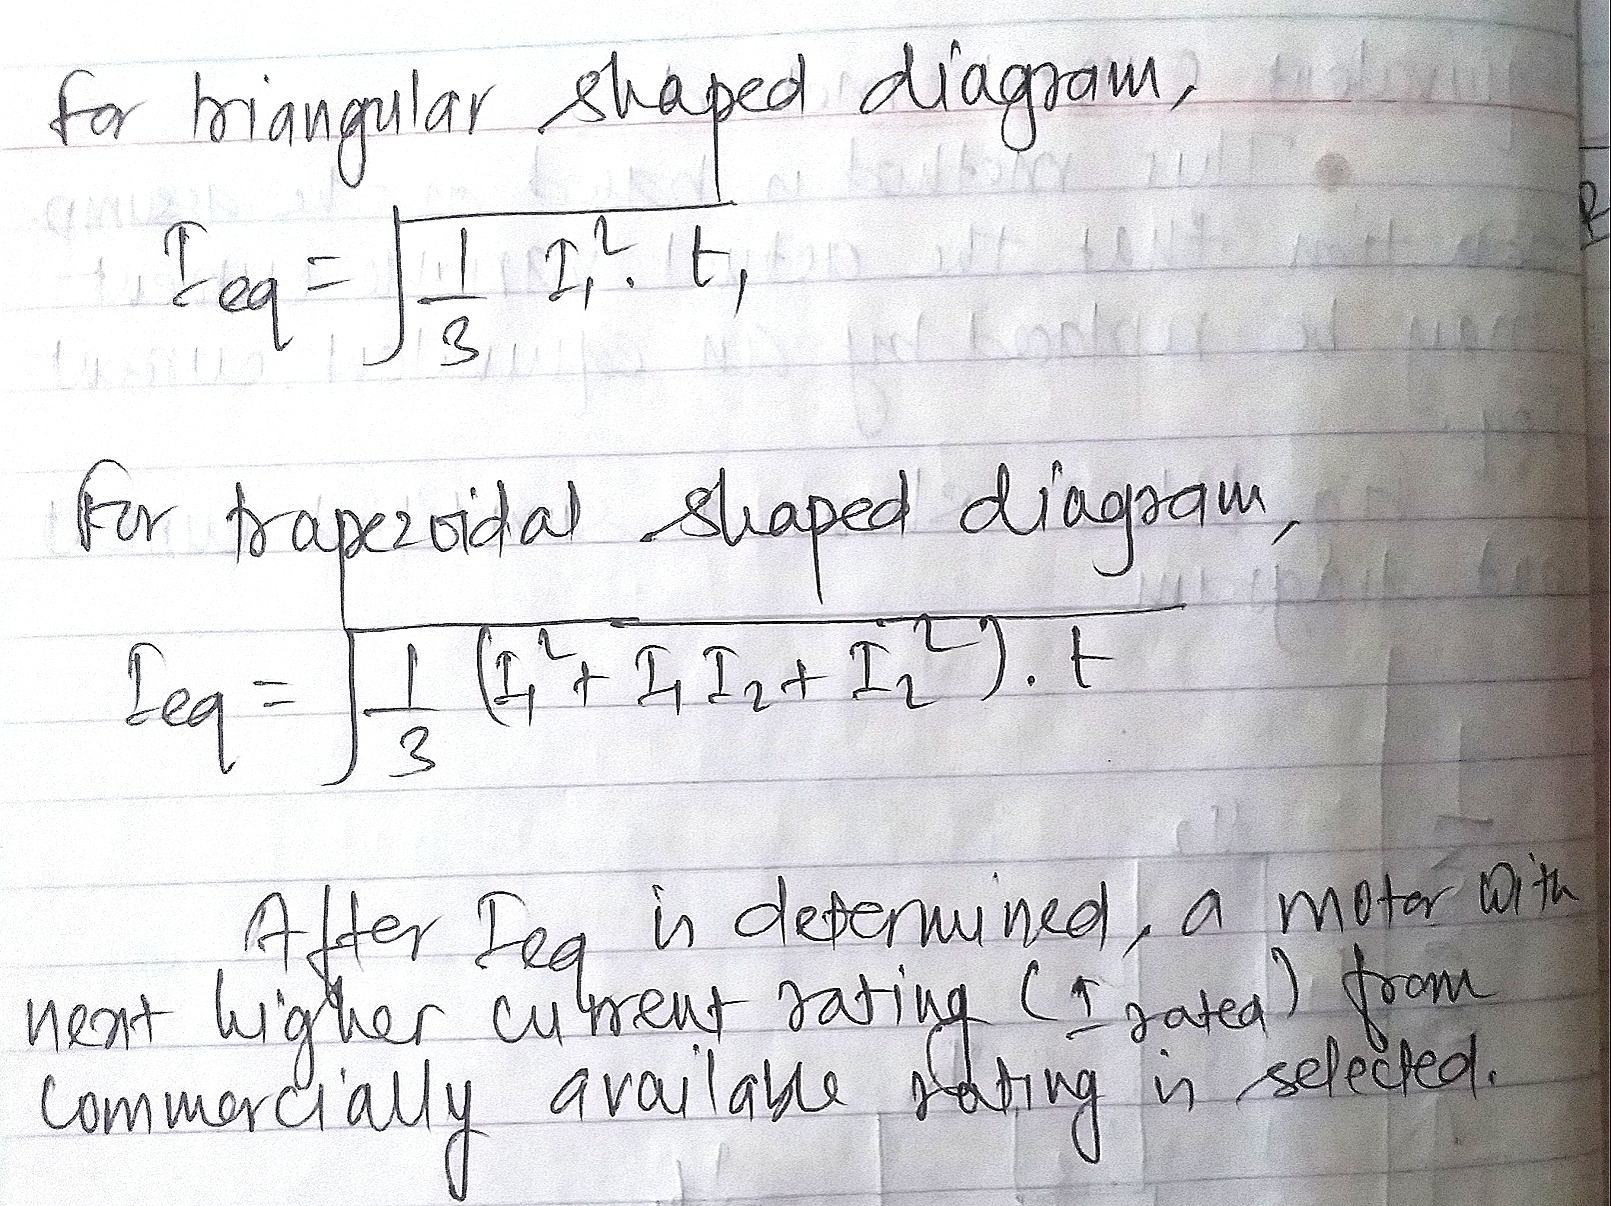 For triangular shaped diagram,
I_eq = √(1/3 I₁². t₁
For trapezoidal shaped diagram,
I_eq = √(1/3 (I₁² + I₁ I₂ + I₂²). t
After I_eq is determined, a motor with
next higher current rating (I_rated) from
commercially available rating is selected.